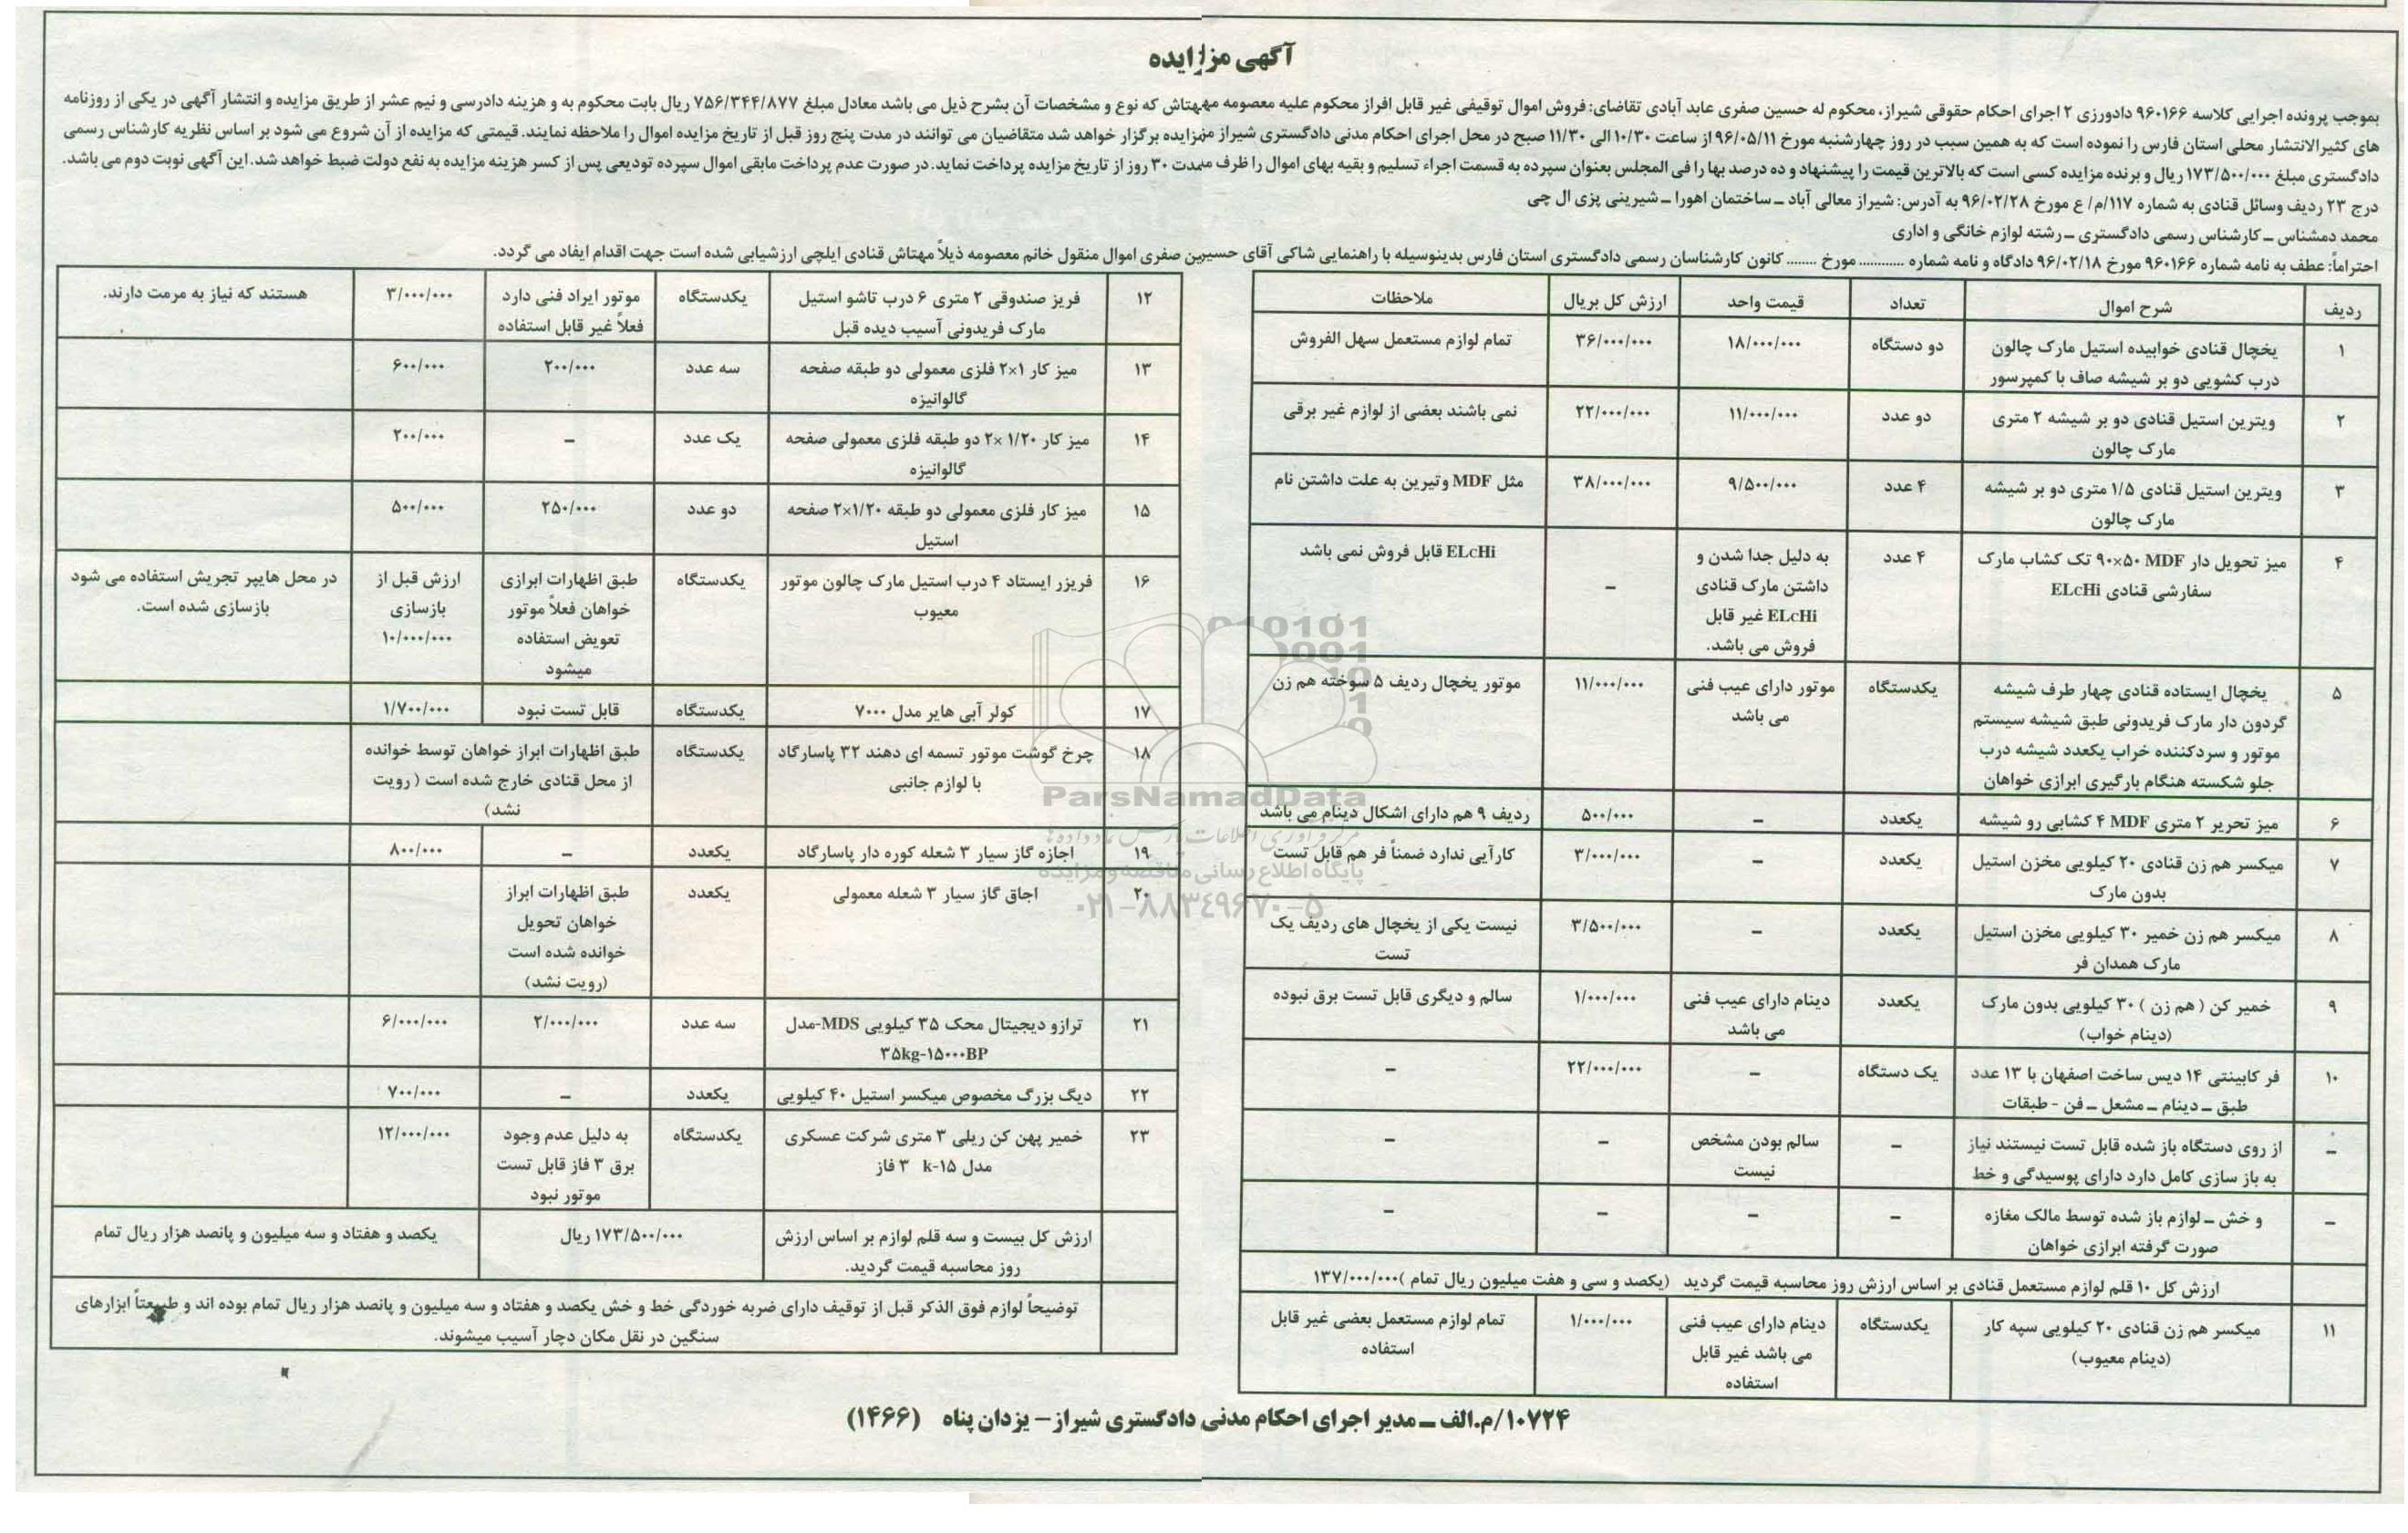 آگهی مزایده
بموجب پرونده اجرایی کلاسه ۹۶۰۱۶۶ دادورزی ۲ اجرای احکام حقوقی شیراز، محکوم له حسین صفری عابد آبادی تقاضای: فروش اموال توقیفی غیر قابل افراز محکوم علیه معصومه مهتاش که نوع و مشخصات آن بشرح ذیل می باشد معادل مبلغ ۷۵۶/۳۴۴/۸۷۷ ریال بابت محکوم به و هزینه دادرسی و نیم عشر از طریق مزایده و انتشار آگهی در یکی از روزنامه
های کثیرالانتشار محلی استان فارس را نموده است که به همین سبب در روز چهارشنبه مورخ ۹۶/۰۵/۱۱ از ساعت ۱۰/۳۰ الی ۱۱/۳۰ صبح در محل اجرای احکام مدنی دادگستری شیراز مزایده برگزار خواهد شد متقاضیان می توانند در مدت پنج روز قبل از تاریخ مزایده اموال را ملاحظه نمایند. قیمتی که مزایده از آن شروع می شود بر اساس نظریه کارشناس رسمی
دادگستری مبلغ ۱۷۳/۵۰۰/۰۰۰ ریال و برنده مزایده کسی است که بالاترین قیمت را پیشنهاد و ده درصد بها را فی المجلس بعنوان سپرده به قسمت اجراء تسلیم و بقیه بهای اموال را ظرف مدت ۳۰ روز از تاریخ مزایده پرداخت نماید. در صورت عدم پرداخت مابقی اموال سپرده تودیعی پس از کسر هزینه مزایده به نفع دولت ضبط خواهد شد. این آگهی نوبت دوم می باشد.
درج ۲۳ ردیف وسائل قنادی به شماره ۱۱۷/م/ ع مورخ ۹۶/۰۲/۲۸ به آدرس: شیراز معالی آباد ـ ساختمان اهورا ـ شیرینی پزی ال چی
محمد دمشناس ـ کارشناس رسمی دادگستری ـ رشته لوازم خانگی و اداری
احتراماً: عطف به نامه شماره ۹۶۰۱۶۶ مورخ ۹۶/۰۲/۱۸ دادگاه و نامه شماره ........... مورخ ........ کانون کارشناسان رسمی دادگستری استان فارس بدینوسیله با راهنمایی شاکی آقای حسین صفری اموال منقول خانم معصومه ذیلاً مهتاش قنادی ایلچی ارزشیابی شده است جهت اقدام ایفاد می گردد.
ردیف شرح اموال تعداد قیمت واحد ارزش کل بریال ملاحظات
۱ یخچال قنادی خوابیده استیل مارک چالون دو دستگاه ۱۸/۰۰۰/۰۰۰ ۳۶/۰۰۰/۰۰۰ تمام لوازم مستعمل سهل الفروش
درب کشویی دو بر شیشه صاف با کمپرسور
۲ ویترین استیل قنادی دو بر شیشه ۲ متری دو عدد ۱۱/۰۰۰/۰۰۰ ۲۲/۰۰۰/۰۰۰ نمی باشند بعضی از لوازم غیر برقی
مارک چالون
۳ ویترین استیل قنادی ۱/۵ متری دو بر شیشه ۴ عدد ۹/۵۰۰/۰۰۰ ۳۸/۰۰۰/۰۰۰ مثل MDF وتیرین به علت داشتن نام
مارک چالون
۴ میز تحویل دار MDF ۹۰×۵۰ تک کشاب مارک ۴ عدد به دلیل جدا شدن و – ELcHi قابل فروش نمی باشد
سفارشی قنادی ELcHi داشتن مارک قنادی
ELcHi غیر قابل
فروش می باشد.
۵ یخچال ایستاده قنادی چهار طرف شیشه یکدستگاه موتور دارای عیب فنی ۱۱/۰۰۰/۰۰۰ موتور یخچال ردیف ۵ سوخته هم زن
گردون دار مارک فریدونی طبق شیشه سیستم می باشد
موتور و سردکننده خراب یکعدد شیشه درب
جلو شکسته هنگام بارگیری ابرازی خواهان
۶ میز تحریر ۲ متری MDF ۴ کشابی رو شیشه یکعدد – ۵۰۰/۰۰۰ ردیف ۹ هم دارای اشکال دینام می باشد
۷ میکسر هم زن قنادی ۲۰ کیلویی مخزن استیل یکعدد – ۳/۰۰۰/۰۰۰ کارآیی ندارد ضمناً فر هم قابل تست
بدون مارک
۸ میکسر هم زن خمیر ۳۰ کیلویی مخزن استیل یکعدد – ۳/۵۰۰/۰۰۰ نیست یکی از یخچال های ردیف یک
مارک همدان فر تست
۹ خمیر کن ( هم زن ) ۳۰ کیلویی بدون مارک یکعدد دینام دارای عیب فنی ۱/۰۰۰/۰۰۰ سالم و دیگری قابل تست برق نبوده
(دینام خواب) می باشد
۱۰ فر کابینتی ۱۴ دیس ساخت اصفهان با ۱۳ عدد یک دستگاه – ۲۲/۰۰۰/۰۰۰ –
طبق ـ دینام ـ مشعل ـ فن - طبقات
– از روی دستگاه باز شده قابل تست نیستند نیاز – سالم بودن مشخص – –
به باز سازی کامل دارد دارای پوسیدگی و خط نیست
– و خش ـ لوازم باز شده توسط مالک مغازه – – – –
صورت گرفته ابرازی خواهان
ارزش کل ۱۰ قلم لوازم مستعمل قنادی بر اساس ارزش روز محاسبه قیمت گردید (یکصد و سی و هفت میلیون ریال تمام )۱۳۷/۰۰۰/۰۰۰
۱۱ میکسر هم زن قنادی ۲۰ کیلویی سپه کار یکدستگاه دینام دارای عیب فنی ۱/۰۰۰/۰۰۰ تمام لوازم مستعمل بعضی غیر قابل
(دینام معیوب) می باشد غیر قابل استفاده
استفاده
۱۲ فریز صندوقی ۲ متری ۶ درب تاشو استیل یکدستگاه موتور ایراد فنی دارد ۳/۰۰۰/۰۰۰ هستند که نیاز به مرمت دارند.
مارک فریدونی آسیب دیده قبل فعلاً غیر قابل استفاده
۱۳ میز کار ۱×۲ فلزی معمولی دو طبقه صفحه سه عدد ۲۰۰/۰۰۰ ۶۰۰/۰۰۰
گالوانیزه
۱۴ میز کار ۱/۲۰ ×۲ دو طبقه فلزی معمولی صفحه یک عدد – ۲۰۰/۰۰۰
گالوانیزه
۱۵ میز کار فلزی معمولی دو طبقه ۱/۲۰×۲ صفحه دو عدد ۲۵۰/۰۰۰ ۵۰۰/۰۰۰
استیل
۱۶ فریزر ایستاد ۴ درب استیل مارک چالون موتور یکدستگاه طبق اظهارات ابرازی ارزش قبل از در محل هایپر تجریش استفاده می شود
معیوب خواهان فعلاً موتور بازسازی بازسازی شده است.
تعویض استفاده ۱۰/۰۰۰/۰۰۰
میشود
۱۷ کولر آبی هایر مدل ۷۰۰۰ یکدستگاه قابل تست نبود ۱/۷۰۰/۰۰۰
۱۸ چرخ گوشت موتور تسمه ای دهند ۳۲ پاسارگاد یکدستگاه طبق اظهارات ابراز خواهان توسط خوانده
با لوازم جانبی از محل قنادی خارج شده است ( رویت
نشد)
۱۹ اجازه گاز سیار ۳ شعله کوره دار پاسارگاد یکعدد – ۸۰۰/۰۰۰
۲۰ اجاق گاز سیار ۳ شعله معمولی یکعدد طبق اظهارات ابراز
خواهان تحویل
خوانده شده است
(رویت نشد)
۲۱ ترازو دیجیتال محک ۳۵ کیلویی MDS-مدل سه عدد ۲/۰۰۰/۰۰۰ ۶/۰۰۰/۰۰۰
۳۵kg-۱۵۰۰۰BP
۲۲ دیگ بزرگ مخصوص میکسر استیل ۴۰ کیلویی یکعدد – ۷۰۰/۰۰۰
۲۳ خمیر پهن کن ریلی ۳ متری شرکت عسکری یکدستگاه به دلیل عدم وجود ۱۲/۰۰۰/۰۰۰
مدل k-۱۵ ۳ فاز برق ۳ فاز قابل تست
موتور نبود
ارزش کل بیست و سه قلم لوازم بر اساس ارزش ۱۷۳/۵۰۰/۰۰۰ ریال یکصد و هفتاد و سه میلیون و پانصد هزار ریال تمام
روز محاسبه قیمت گردید.
توضیحاً لوازم فوق الذکر قبل از توقیف دارای ضربه خوردگی خط و خش یکصد و هفتاد و سه میلیون و پانصد هزار ریال تمام بوده اند و طبیعتاً ابزارهای
سنگین در نقل مکان دچار آسیب میشوند.
۱۰۷۲۴/م.الف ـ مدیر اجرای احکام مدنی دادگستری شیراز – یزدان پناه (۱۴۶۶)
ParsNamadData
پایگاه اطلاع رسانی مناقصه و مزایده
۰۲۱-۸۸۳۴۹۶۷۰-۵